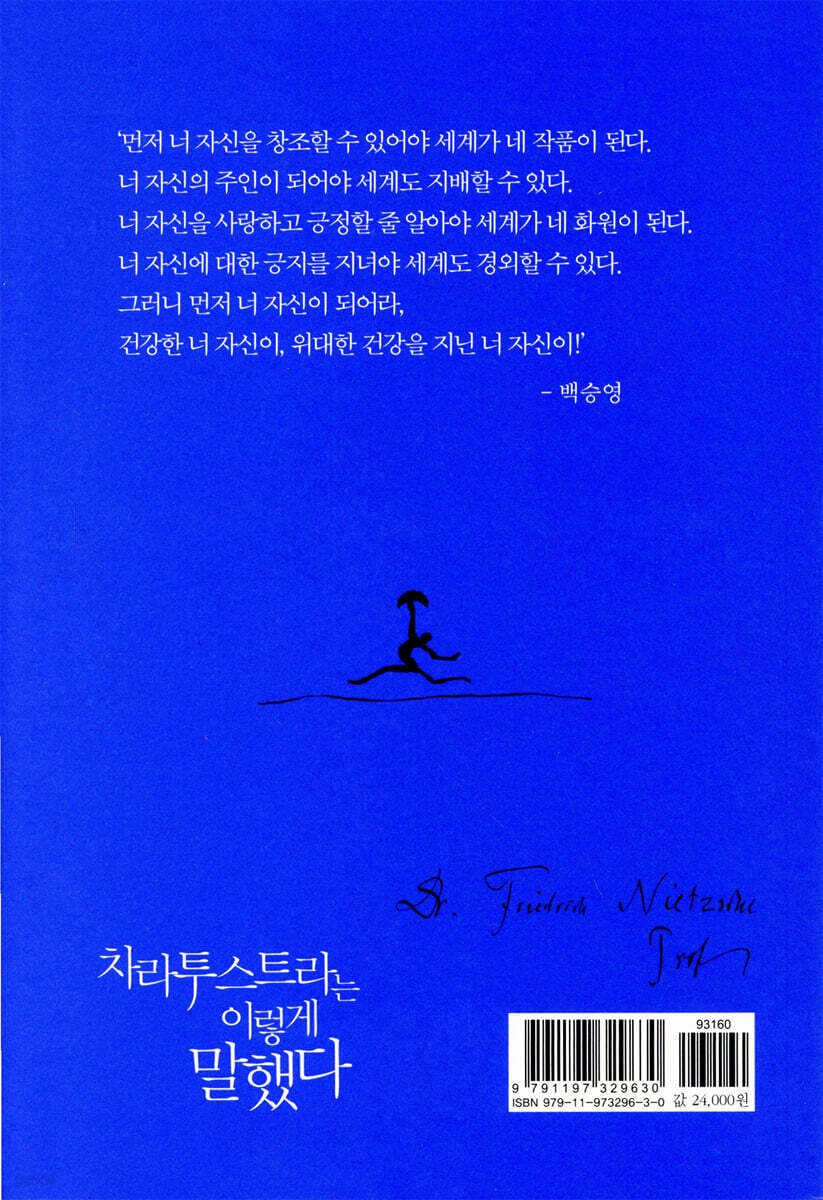 ‘먼저 너 자신을 창조할 수 있어야 세계가 네 작품이 된다.
너 자신의 주인이 되어야 세계도 지배할 수 있다.
너 자신을 사랑하고 긍정할 줄 알아야 세계가 네 화원이 된다.
너 자신에 대한 긍지를 지녀야 세계도 경외할 수 있다.
그러니 먼저 너 자신이 되어라,
건강한 너 자신이, 위대한 건강을 지닌 너 자신이!’
– 백승영
Dr. Friedrich Nietzsche
Prof
차라투스트라는
이렇게
말했다
93160
9 791197 329630
ISBN 979-11-973296-3-0 값 24,000원